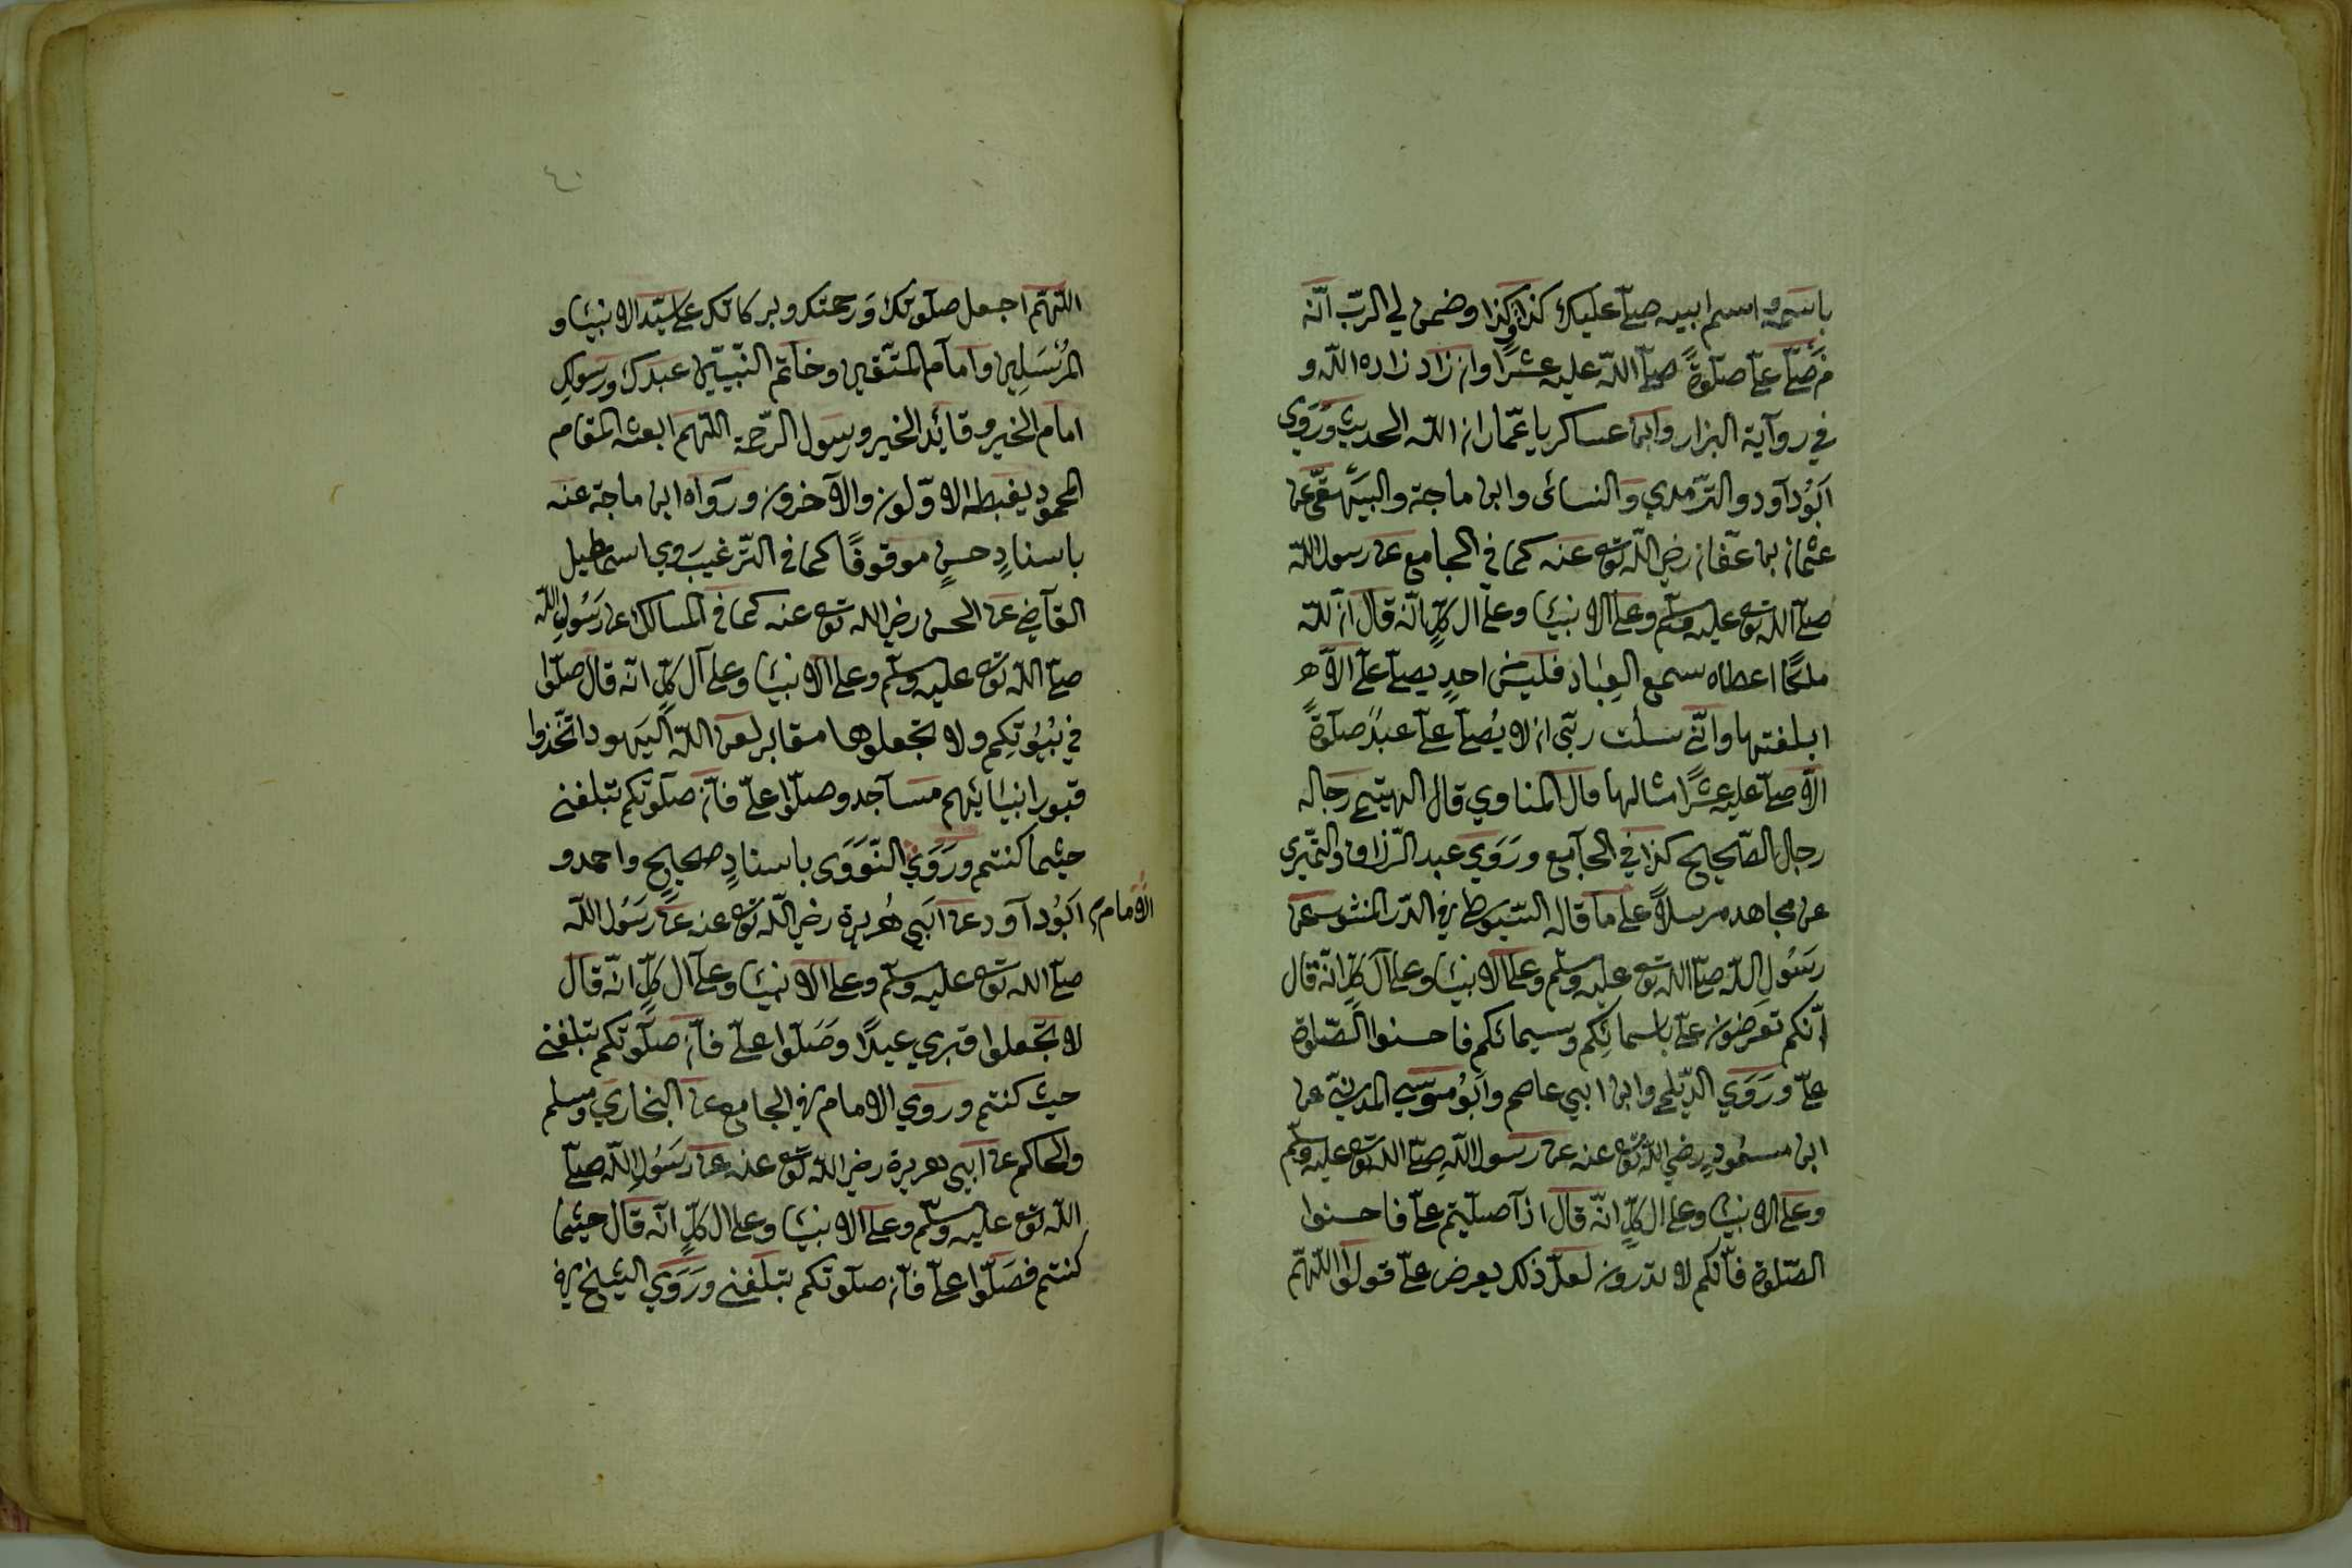 باسمه واسم ابيه صلّى عليك كذا وكذا وضمن لي الربّ انّه
من صلّى علىّ صلوةً صلّى اللّه عليه عشرًا وان زاد زاده اللّه و
في رواية البزار وابن عساكر يا عمّار ان اللّه الحديث وروى
ابُوداود والترمدي والنسائى وابن ماجة والبيهقىّ عن
عثمان بن عفّان رضي اللّه تع عنه كما في الجامع عن رسول اللّه
صلّى اللّه تع عليه وسلّم وعلى الانبيَا وعلى ال كلٍّ انّه قال انّ للّه
ملكًا اعطاه سمع العِبَاد فليس احدٍ يصلّى علىّ الاّ
ابلغنيها وانّي سئلت ربّي ان لا يُصلّى علىّ عبدٌ صلوةً
الاّ صلّى عليه عشرًا مثالها قال المناوي قال الهيتمي رجاله
رجال الصّحيح كذا في الجامع ورَوَي عبد الرّزاق والنّميرى
عن مجاهد مرسلاً على ما قاله السّيوطي في الدّر المنثور عن
رسُولِ اللّه صلّى اللّه تع عليه وسلّم وعلى الانبيَا وعلى آل كلٍّ انّه قال
انّكم تعرضون علىّ باسمائِكم وسيمائكم فاحسنوا الصّلوة
علىّ ورَوَي الدّيلمي وابن ابي عاصم وابُو موسي المدينىّ عن
ابن مسعُودٍ رضي اللّه تع عنه عن رسول اللّه صلّى اللّه تع عليه وسلّم
وعلى الانبيَا وعلى ال كلٍّ انّه قال اذا صلّيتم علىّ فاحسنوا
الصّلوة فانّكم لا تدرون لعلّ ذلك يعرض علىّ قولوا اللّهمّ
٤٠
اللّهمّ اجعل صلوتك ورحمتك وبركاتك على سيّد الانبيَا و
المرُسَلِين وامام المتّقين وخاتم النّبيّين عبدك ورسولك
امام الخير وقائد الخير ورسول الرّحمة اللّهمّ ابعثه المقام
المحمود يغبطه الاوّلون والآخرون ورواه ابن ماجة عنه
باسنادٍ حسنٍ موقوفًا كما في التّرغيب وروي اسمعيل
القاضي عن الحسن رضي اللّه تع عنه كما في المسالك عن رسُولِ اللّه
صلّى اللّه تع عليه وسلّم وعلى الانبيَا وعلى آل كلٍّ انّه قال صلّوا
في بُيُوتكم ولا تجعلوها مقابر لعن اللّه اليهود اتّخذوا
قبور انبيَائهم مساجد وصلّوا علىّ فانّ صلوتكم تبلغنى
حيثما كنتم ورَوَي النّوَوَى باسنادٍ صحيحٍ واحمد و
الامام ابُوداود عن ابي هُريرة رضي اللّه تع عنه عن رسُول اللّه
صلّى اللّه تع عليه وسلّم وعلى الانبيَا وعلى ال كلٍّ انّه قال
لا تجعلوا قبري عيدًا وصَلّوا علىّ فانّ صلوتكم تبلغنى
حيث كنتم وروي الامام في الجامع عن البخاري ومسلم
والحاكم عن ابي هريرة رضي اللّه تع عنه عن رسُولِ اللّه صلّى
اللّه تع عليه وسلّم وعلى الانبيَا وعلى ال كلٍّ انّه قال حيثما
كنتم فصَلّوا علىّ فانّ صلوتكم تبلغنى ورَوَي الشيخ في